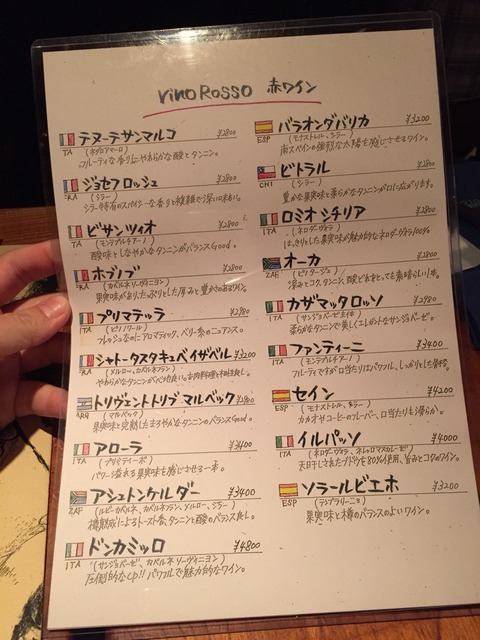 vino Rosso 赤ワイン
テヌーテサンマルコ ¥2800
ITA (ネグロアマーロ)
フルーティな香りとやわらかな酸とタンニン。
ジョセフロッシュ ¥2800
FRA (シラー)
シラー特有のスパイシーな香りと複雑で深い味わい。
ビサンツィオ ¥2800
ITA (モンテプルチアーノ)
酸味としなやかなタンニンがバランスGood。
ホブノブ ¥2800
FRA (カベルネソーヴィニヨン)
果実味があり、たっぷりとした厚みと豊かさのあるワイン。
プリマテッラ ¥2980
ITA (ピノノワール)
フレッシュなのにアロマティック、ベリー系のニュアンス。
シャトータスタキュベイザベル ¥3200
FRA (メルロー、カベルネフラン)
やわらかなタンニンがべた良い。お肉料理と相性良し。
トリヴェントトリブマルベック
ARG (マルベック)
果実味と完熟したまろやかなタンニンのバランスGood。
アローラ ¥3400
ITA (プリミティーボ)
パワー溢れる果実味を感じさせる一本。
アシュトンケルダー ¥3400
ZAF (ルビーカベルネ、カベルネフラン、メルロー、シラー)
樽熟成によるトースト香、タンニンと酸のバランス良し。
ドンカミッロ ¥4800
ITA (サンジョベーゼ、カベルネソーヴィニヨン)
圧倒的なCP!! パワフルで魅力的なワイン。
バラオンダバリカ ¥3200
ESP (モナストレル、シラー)
南スペインの強烈な太陽を感じさせるワイン。
ビトラル ¥2800
CHI (シラー)
豊かな果実味と柔らかなタンニンが口に広がります。
ロミオ シチリア ¥2800
ITA (ネロダーヴォラ)
はっきりとした果実味が魅力的なネロダーヴォラ100%
オーカ ¥2800
ZAF (ピノタージュ)
深みとコク、タンニン、酸どれをとっても素晴らしい1本。
カザマッタ ロッソ ¥2980
ITA (サンジョベーゼ主体)
柔らかなタンニンで美しくエレガントなサンジョベーゼ。
ファンティーニ ¥3400
ITA (モンテプルチアーノ)
フルーティですが口当たりはパワフル、しっかりした骨格。
セイン ¥4200
ESP (モナストレル、シラー)
カカオやコーヒーのフレーバー、口当たりも滑らか。
イルパッソ ¥4000
ITA (ネロダーヴォラ、ネレッロマスカレーゼ)
天日干しされたブドウを80%使用、旨みとコクのワイン。
ソラールビエホ ¥3200
ESP (テンプラリーニョ)
果実味と樽のバランスのよいワイン。